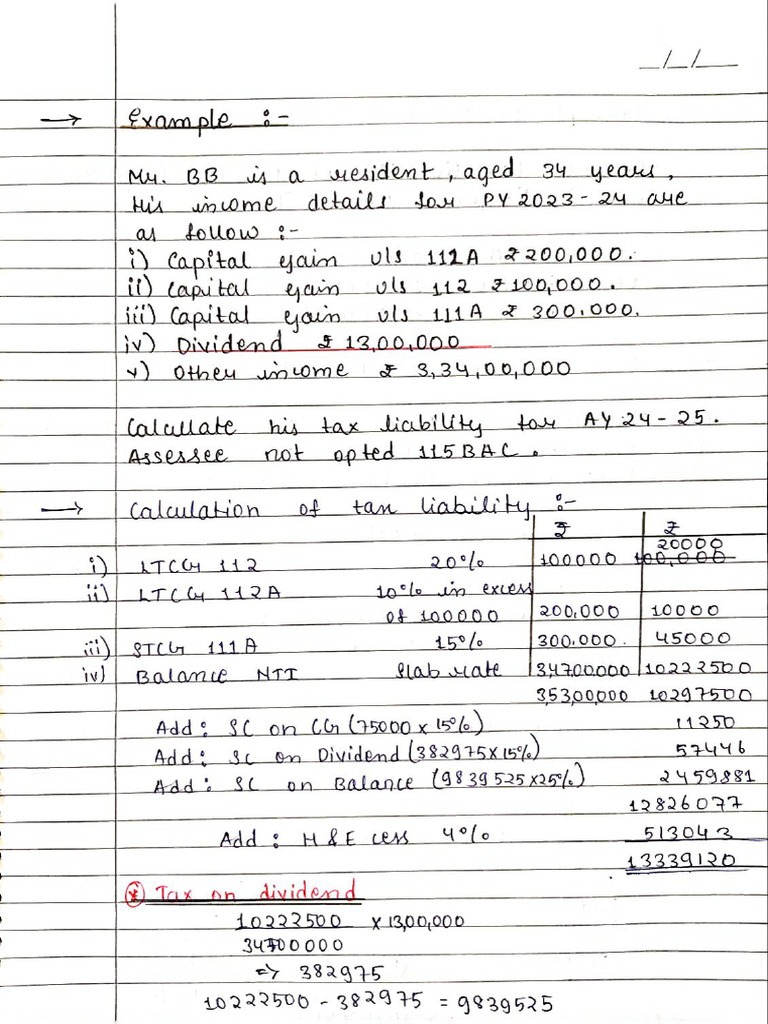 _/_/__
→ Example :-
Mr. BB is a resident, aged 34 years,
His income details for PY 2023-24 are
as follow :-
i) Capital gain u/s 112A ₹200,000.
ii) Capital gain u/s 112 ₹100,000.
iii) Capital gain u/s 111A ₹ 300.000.
iv) Dividend ₹ 13,00,000
v) Other income ₹ 3,34,00,000
Calculate his tax liability for AY 24-25.
Assessee not opted 115BAC.
→ Calculation of tax liability :-
₹ ₹
20000
i) LTCG 112 20% 100000 100,000
ii) LTCG 112A 10% in excess
of 100000 200,000 10000
iii) STCG 111A 15% 300.000. 45000
iv) Balance NTI Slab rate 34700000 10222500
35300000 10297500
Add: SC on CG (75000 x 15%) 11250
Add: SC on Dividend (382975 x 15%) 57446
Add: SC on Balance (9839525 x 25%) 2459881
12826077
Add: H & E cess 4% 513043
13339120
* Tax on dividend
10222500 x 13,00,000
34700000
=> 382975
10222500 - 382975 = 9839525